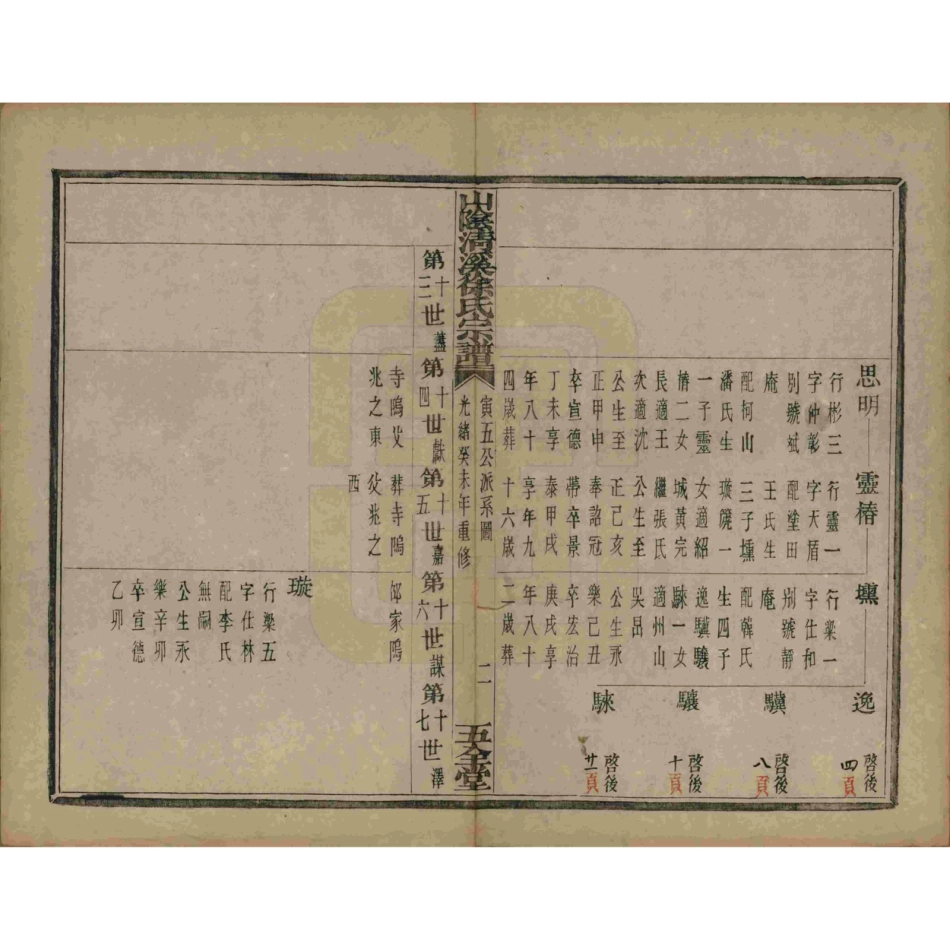 思明
行彬三
字仲彰
別號斌
庵
配柯山
潘氏生
一子靈
椿二女
長適王
次適沈
公生至
正甲申
卒宣德
丁未享
年八十
四歲葬
寺鳴父
兆之東
靈椿
行靈一
字大盾
配塗田
王氏生
三子壎
璇
女適紹
城黃完
繼張氏
公生至
正己亥
奉詔冠
帶卒景
泰甲戌
享年九
十六歲
葬寺鳴
父兆之
西
壎
行樂一
字仕和
別號靜
庵
配韓氏
生四子
逸驥驤
騋一女
適州山
吳昂
公生永
樂己丑
卒宏治
庚戌享
年八十
二歲葬
邵家鳴
逸
啓後
四頁
驥
啓後
八頁
驤
啓後
十頁
騋
啓後
廿一頁
山陰清溪徐氏宗譜
寅五公派系圖
光緒癸未年重修
二
五全堂
第十三世 藎
第十四世 猷
第十五世 嘉
第十六世 謀
第十七世 澤
璇
行樂五
字仕林
配李氏
無嗣
公生永
樂辛卯
卒宣德
乙卯